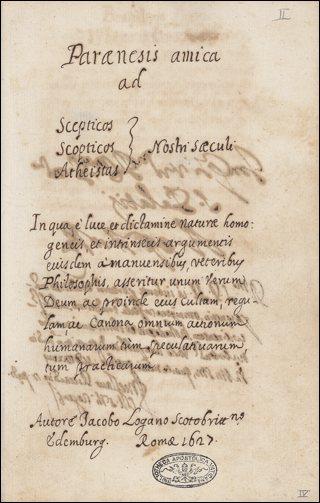 II
Parænesis amica
ad
Scepticos
Scopticos
Atheistas
Nostri sæculi
In qua è luce, et dictamine naturæ homo-
geneis, et intrinsecis argumentis
eiusdem amanuensibus, veteribus
Philosophis, asseritur unum verum
Deum ac proinde eius cultum, regu-
lam ac Canona omnium actionum
humanarum tùm speculativarum,
tum practicarum
Autore Jacobo Logano Scotobrit
Edemburg. Romæ 1627.
APOSTOLICA
IV